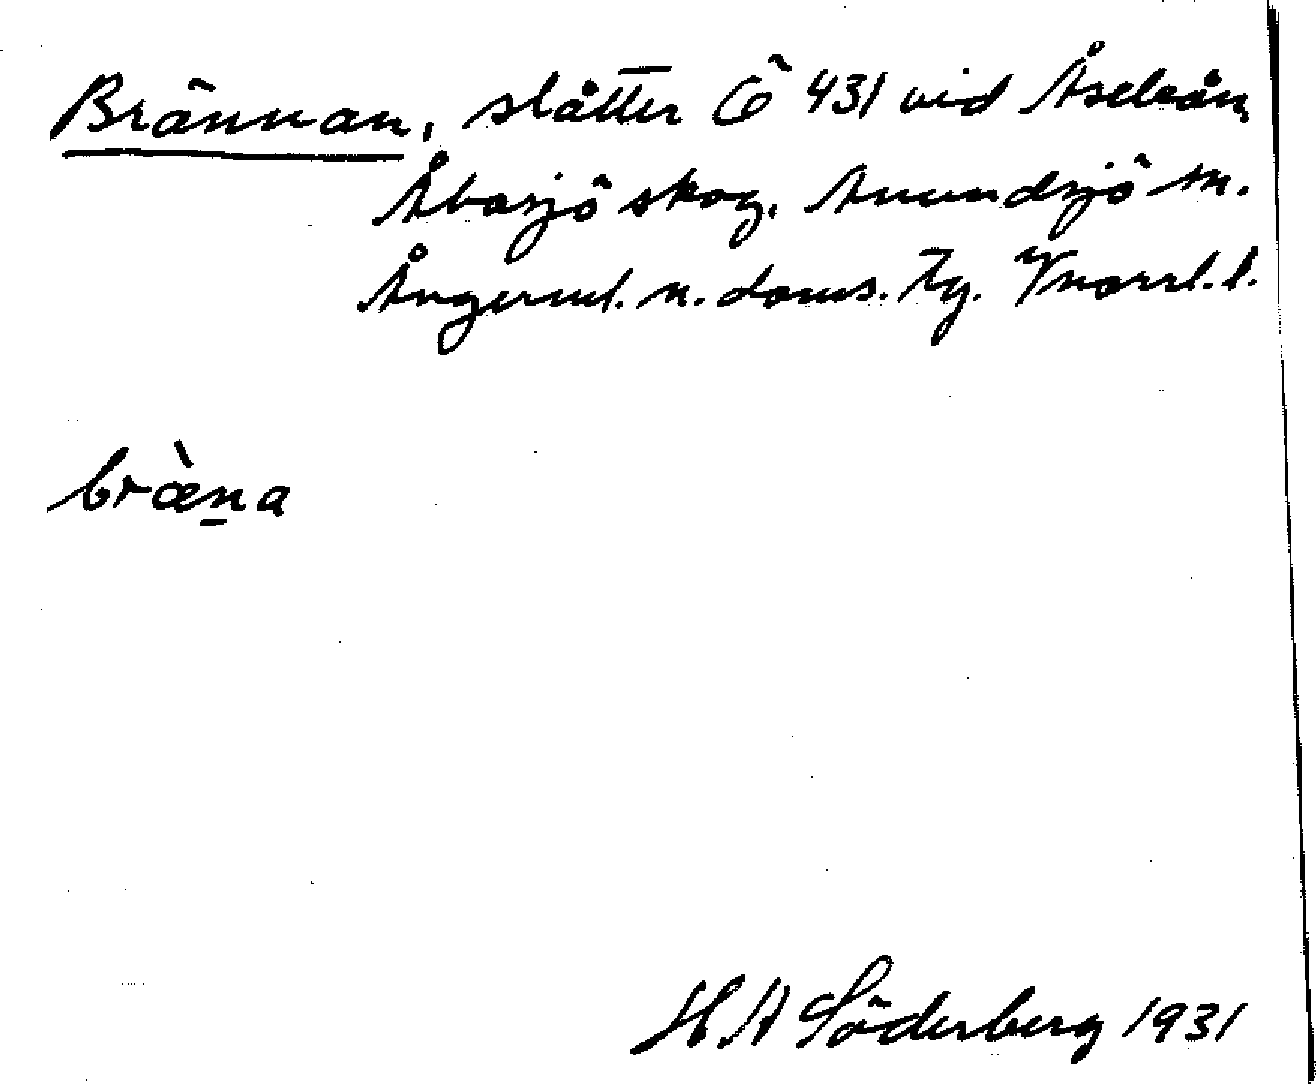 Brännan, slåtter Ö 431 vid Åseleån,
Åbosjö skog, Anundsjö sn.
Ångerml. n. doms. tg. Vnorrl. l.
bràn̲a
H A Söderberg 1931